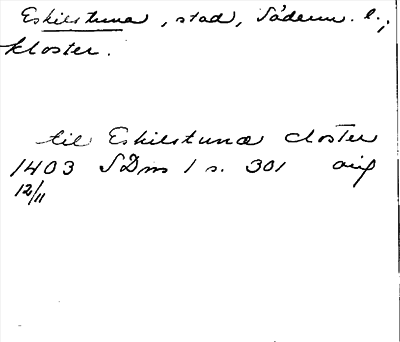 Eskilstuna, stad, Söderm. l.,
kloster.
til Eskilstuna closter
1403 SDns 1 s. 301 orig
12/11